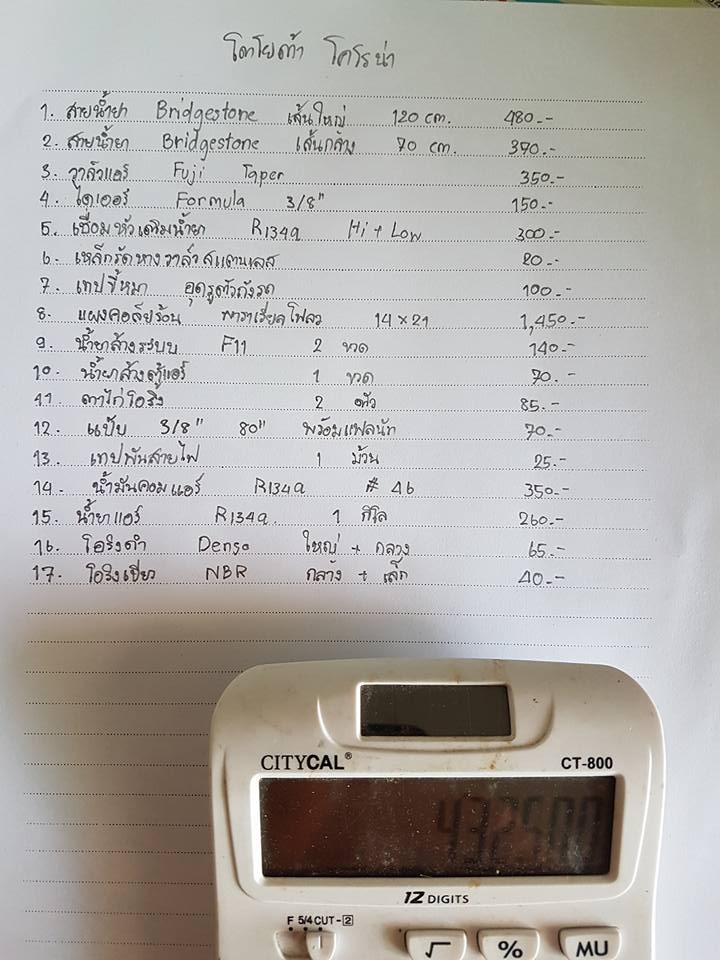 โตโยต้า โคโรน่า
1. สายน้ำยา Bridgestone เส้นใหญ่ 120 cm. 480.-
2. สายน้ำยา Bridgestone เส้นกลาง 70 cm. 390.-
3. วาล์วแอร์ Fuji Taper 350.-
4. ไดเออร์ Formula 3/8" 150.-
5. เชื่อมหัวเติมน้ำยา R134a Hi + Low 300.-
6. เหล็กรัดหางวาล์ว สแตนเลส 20.-
7. เทปขี้หมา อุดรูตัวถังรถ 100.-
8. แผงคอล์ยร้อน พาราเรียลโฟลว 14 x 21 1,450.-
9. น้ำยาล้างระบบ F11 2 ขวด 140.-
10. น้ำยาล้างตู้แอร์ 1 ขวด 70.-
11. ตาไก่โอริง 2 ตัว 85.-
12. แป๊ป 3/8" 80" พร้อมแฟลนัท 70.-
13. เทปพันสายไฟ 1 ม้วน 25.-
14. น้ำมันคอมแอร์ R134a # 46 350.-
15. น้ำยาแอร์ R134a. 1 กิโล 260.-
16. โอริงดำ Denso ใหญ่ + กลาง 65.-
17. โอริงเขียว NBR กลาง + เล็ก 40.-
CITYCAL® CT-800
432500
12 DIGITS
F 5/4 CUT - 2
√ % MU